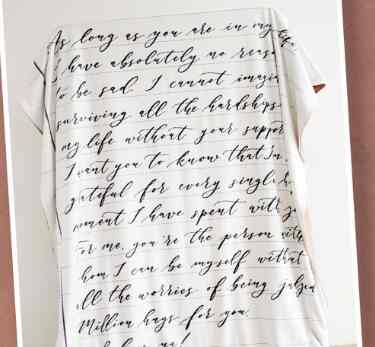 As long as you are in my life,
I have absolutely no reaso
to be sad. I cannot imagin
surviving all the hardships
my life without your suppor
I want you to know that I'm
grateful for every single
moment I have spent with y
or me, you're the person with
hom I can be myself without
all the worries of being judged
Million hugs for you.